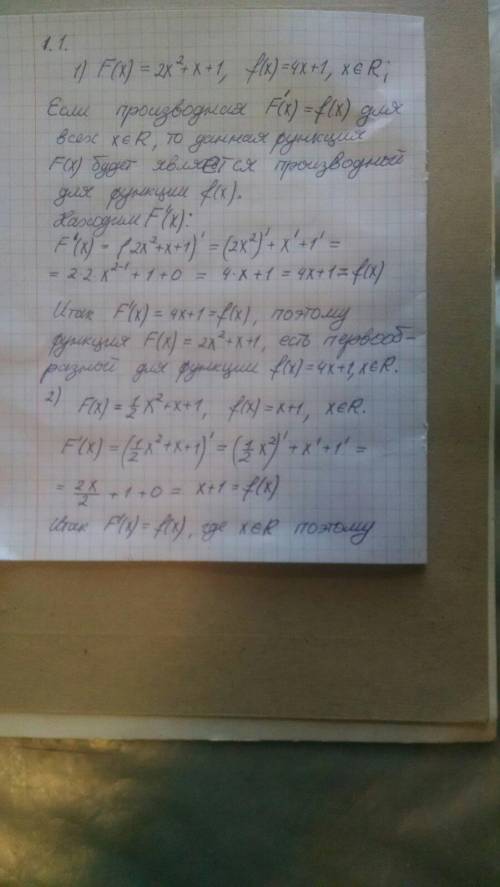 1.1.
1) F(x) = 2x²+x+1, f(x)=4x+1, x∈R;
Если производная F'(x)=f(x) для
всех x∈R, то данная функция
F(x) будет является производной
для функции f(x).
Находим F'(x):
F'(x) = (2x²+x+1)' = (2x²)'+x'+1' =
= 2·2x²⁻¹+1+0 = 4·x+1 = 4x+1=f(x)
Итак F'(x) = 4x+1=f(x), поэтому
функция F(x) = 2x²+x+1, есть первооб-
разной для функции f(x)=4x+1, x∈R.
2) F(x) = 1/2 x²+x+1, f(x)=x+1, x∈R.
F'(x) = (1/2 x²+x+1)' = (1/2 x²)'+x'+1' =
= 2x/2 +1+0 = x+1 = f(x)
Итак F'(x) = f(x), где x∈R поэтому